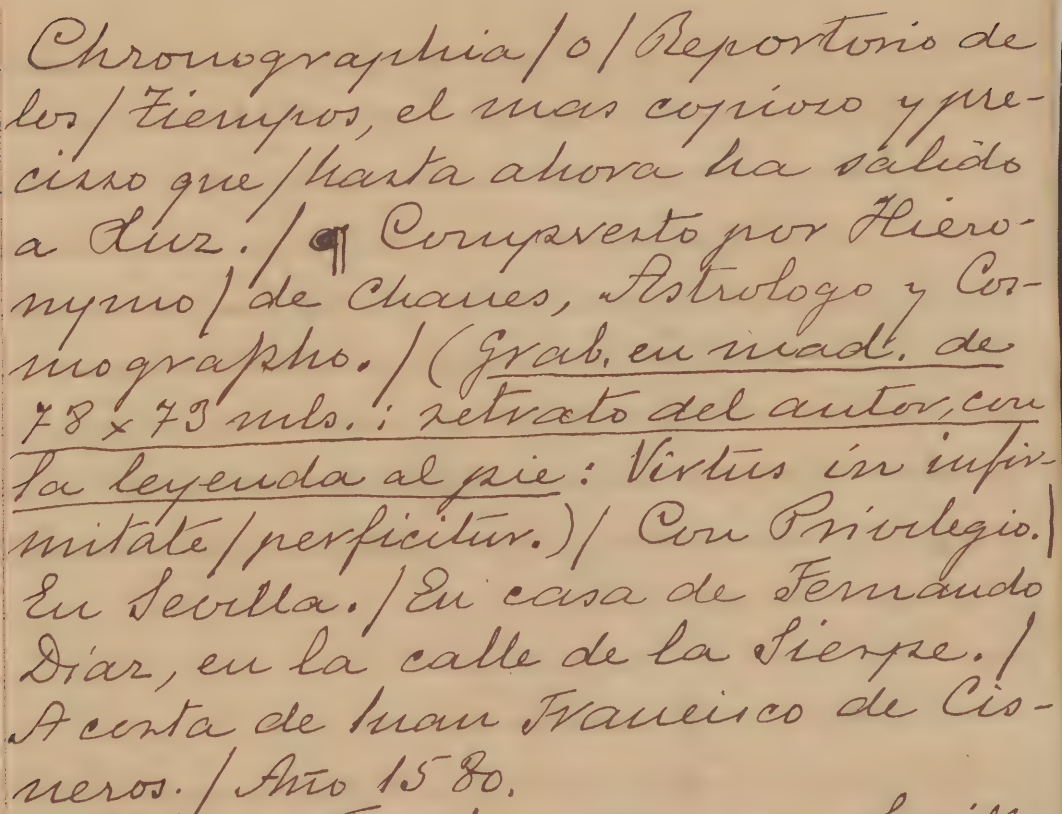 Chronographia / o / Reportorio de
los / Tiempos, el mas copioso y pre-
cisso que / hasta ahora ha salido
a Luz. / ¶ Compvesto por Hiero-
nymo / de Chaues, Astrologo y Cos-
mographo. / (Grab. en mad. de
78 x 73 mls.: retrato del autor, con
la leyenda al pie: Virtus in infir-
mitate / perficitur.) / Con Privilegio. /
En Sevilla. / En casa de Fernando
Díaz, en la calle de la Sierpe. /
A costa de Iuan Francisco de Cis-
neros. / Año 1580.